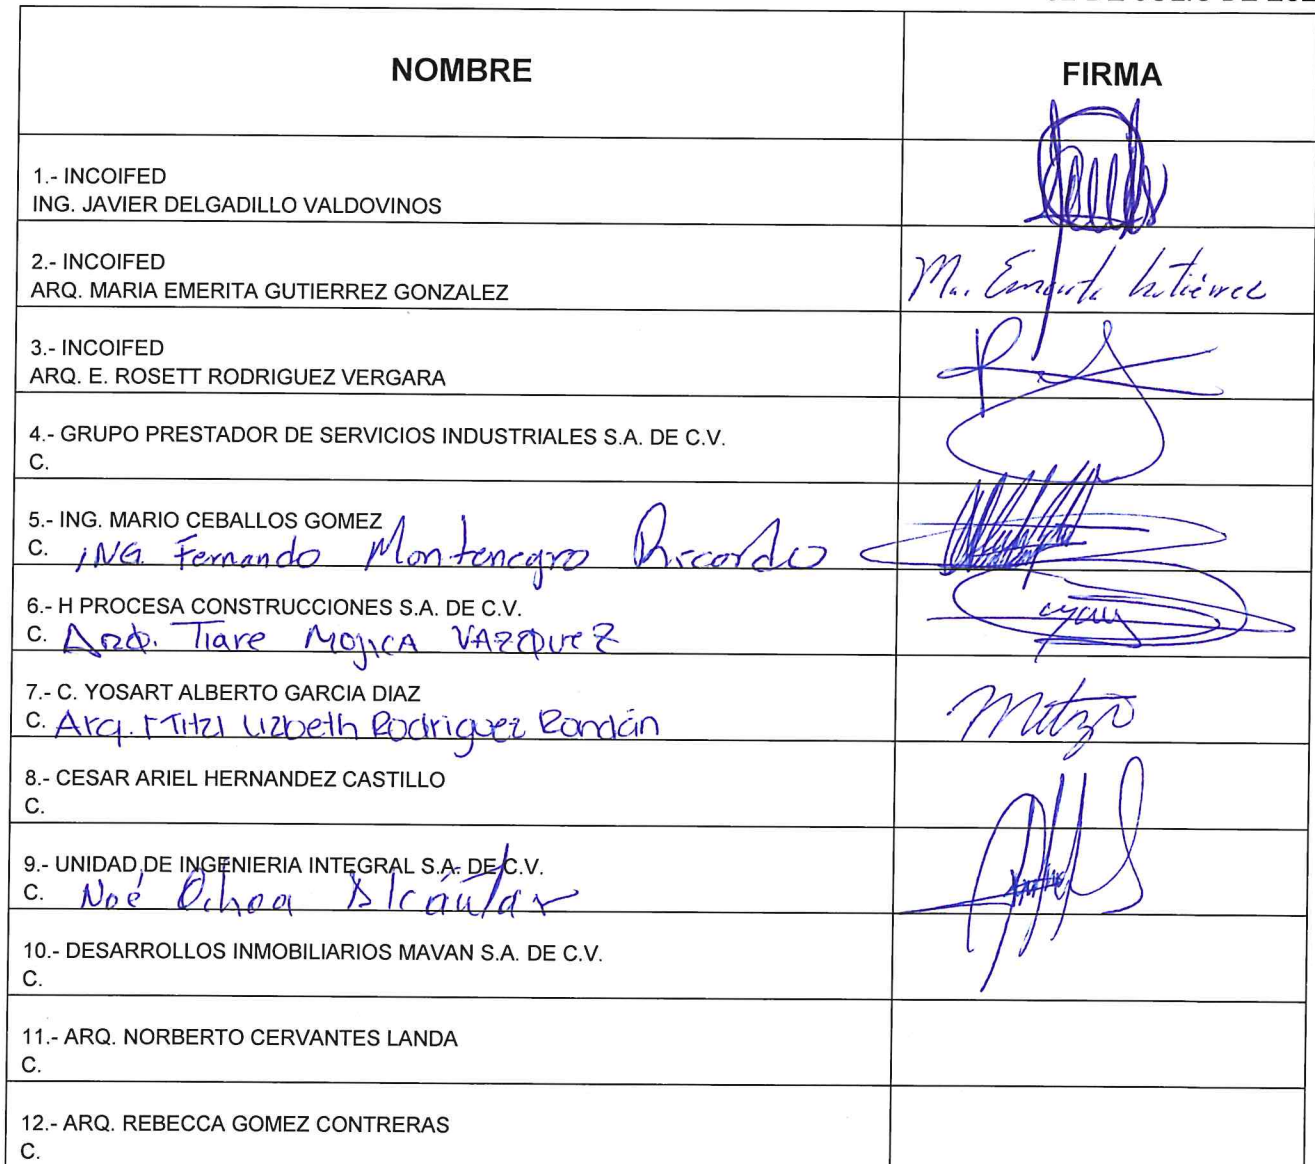 NOMBRE
FIRMA
1.- INCOIFED
ING. JAVIER DELGADILLO VALDOVINOS
2.- INCOIFED
ARQ. MARIA EMERITA GUTIERREZ GONZALEZ
Ma. Emerita Gutiérrez
3.- INCOIFED
ARQ. E. ROSETT RODRIGUEZ VERGARA
4.- GRUPO PRESTADOR DE SERVICIOS INDUSTRIALES S.A. DE C.V.
C.
5.- ING. MARIO CEBALLOS GOMEZ
C. ING. Fernando Montenegro Ricardo
6.- H PROCESA CONSTRUCCIONES S.A. DE C.V.
C. Arq. Tiare Mojica VAzquez
7.- C. YOSART ALBERTO GARCIA DIAZ
C. Arq. Mitzi Lizbeth Rodriguez Rondán
8.- CESAR ARIEL HERNANDEZ CASTILLO
C.
9.- UNIDAD DE INGENIERIA INTEGRAL S.A. DE C.V.
C. Noé Ochoa
10.- DESARROLLOS INMOBILIARIOS MAVAN S.A. DE C.V.
C.
11.- ARQ. NORBERTO CERVANTES LANDA
C.
12.- ARQ. REBECCA GOMEZ CONTRERAS
C.